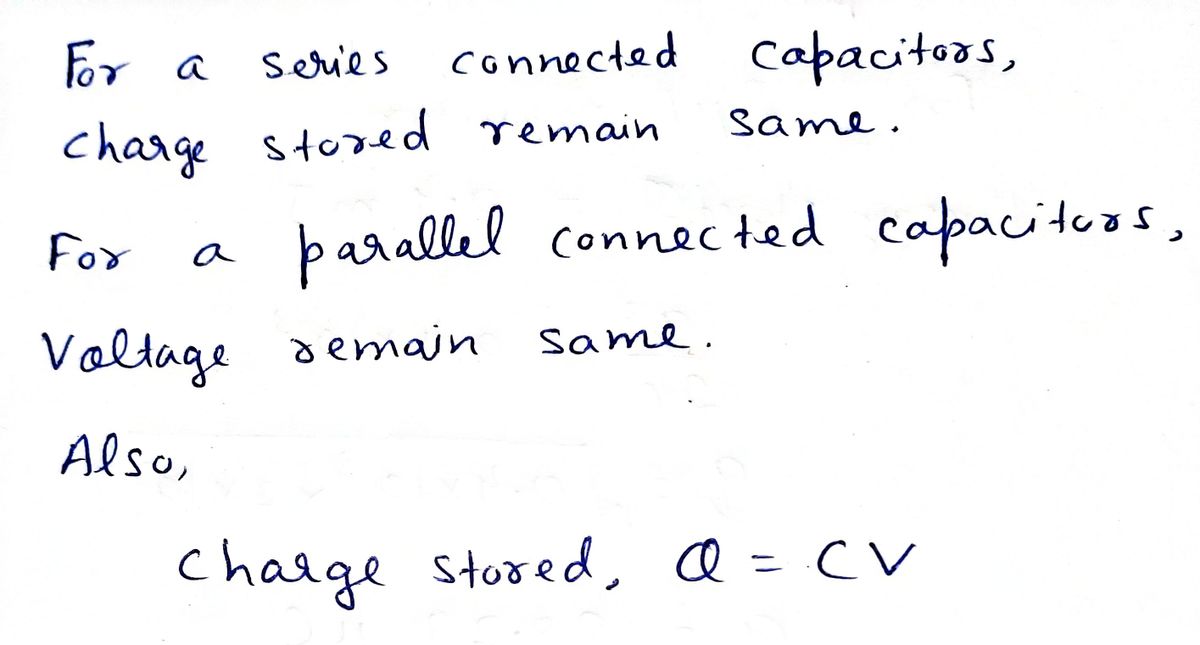 For a series connected capacitors,
charge stored remain same.
For a parallel connected capacitors,
Voltage remain same.
Also,
charge stored, Q = CV